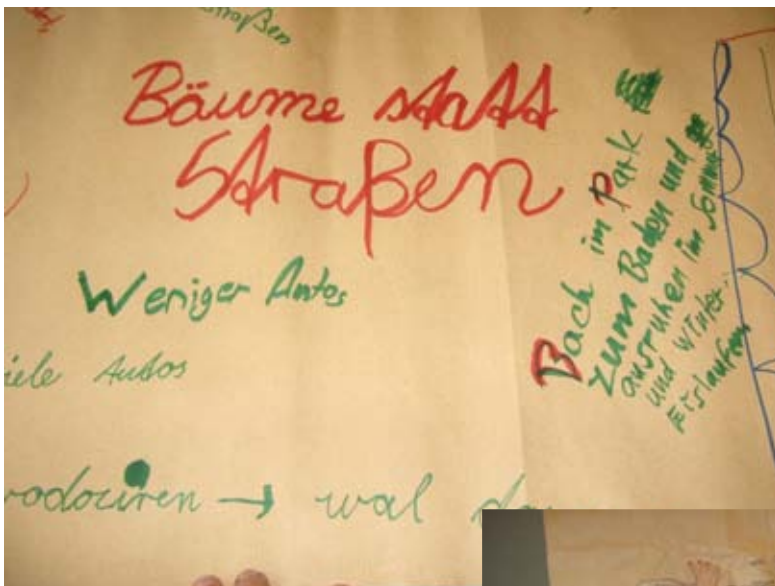 straßen
Bäume statt
Straßen
Weniger Autos
iele Autos
rodoziren → wal da
Bach im Park
zum Baden und
ausruhen im Sommer
und Winter
Eislaufen